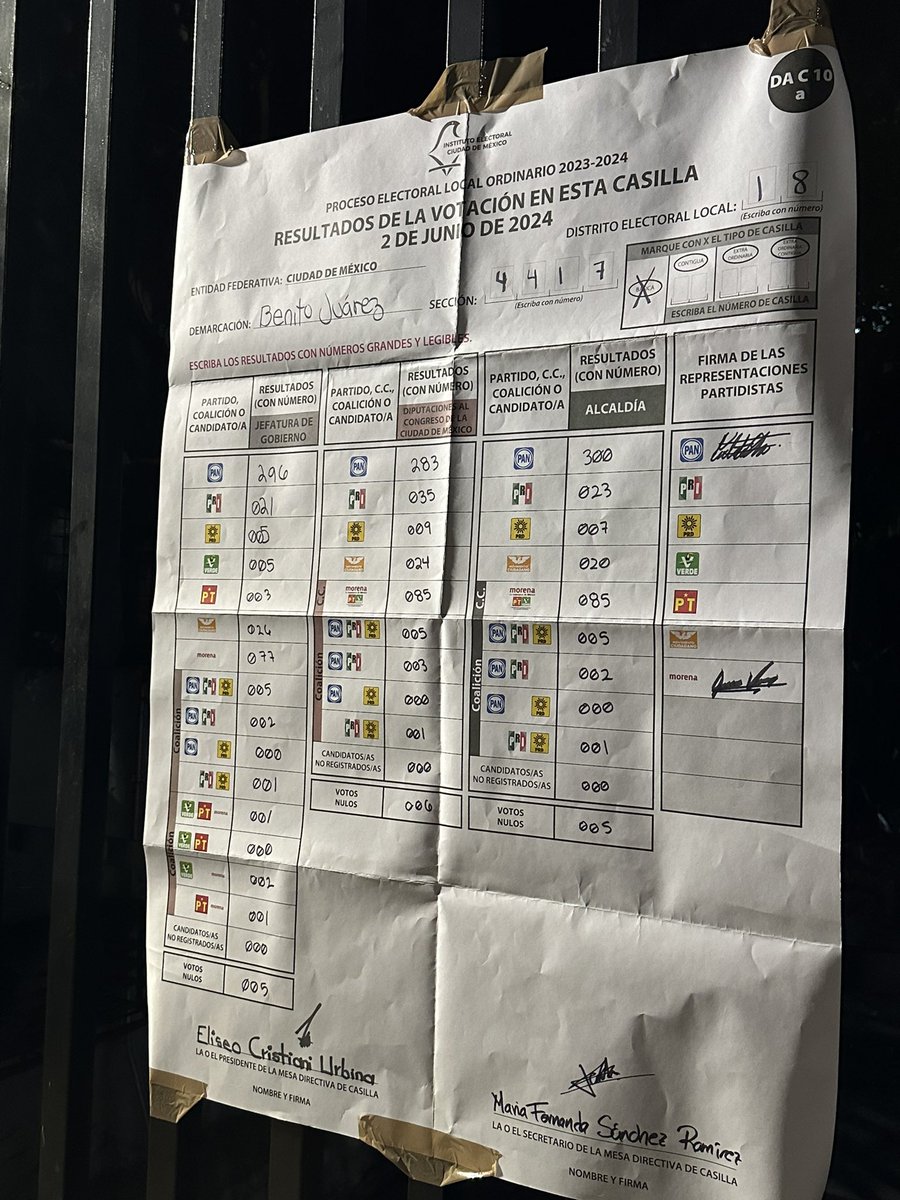 DA C 10
a
INSTITUTO ELECTORAL
CIUDAD DE MÉXICO
PROCESO ELECTORAL LOCAL ORDINARIO 2023-2024
RESULTADOS DE LA VOTACIÓN EN ESTA CASILLA
2 DE JUNIO DE 2024
DISTRITO ELECTORAL LOCAL: 1 8
(Escriba con número)
ENTIDAD FEDERATIVA: CIUDAD DE MÉXICO
DEMARCACIÓN: Benito Juárez
SECCIÓN: 4 4 1 7
(Escriba con número)
MARQUE CON X EL TIPO DE CASILLA
BÁSICA X
CONTIGUA
EXTRA ORDINARIA
EXTRA ORDINARIA CONTIGUA
ESCRIBA EL NÚMERO DE CASILLA
ESCRIBA LOS RESULTADOS CON NÚMEROS GRANDES Y LEGIBLES.
PARTIDO, COALICIÓN O CANDIDATO/A
RESULTADOS (CON NÚMERO)
JEFATURA DE GOBIERNO
PAN 296
PRI 021
PRD 005
VERDE 005
PT 003
MOVIMIENTO CIUDADANO 026
morena 077
Coalición
PAN PRI PRD 005
PAN PRI 002
PAN PRD 000
PRI PRD 001
Coalición
VERDE PT morena 001
VERDE PT 000
VERDE morena 002
PT morena 001
CANDIDATOS/AS NO REGISTRADOS/AS 000
VOTOS NULOS 005
PARTIDO, C.C., COALICIÓN O CANDIDATO/A
RESULTADOS (CON NÚMERO)
DIPUTACIONES AL CONGRESO DE LA CIUDAD DE MÉXICO
PAN 283
PRI 035
PRD 009
MOVIMIENTO CIUDADANO 024
C.C.
morena PT VERDE 085
Coalición
PAN PRI PRD 005
PAN PRI 003
PAN PRD 000
PRI PRD 001
CANDIDATOS/AS NO REGISTRADOS/AS 000
VOTOS NULOS 006
PARTIDO, C.C., COALICIÓN O CANDIDATO/A
RESULTADOS (CON NÚMERO)
ALCALDÍA
PAN 300
PRI 023
PRD 007
MOVIMIENTO CIUDADANO 020
C.C.
morena PT VERDE 085
Coalición
PAN PRI PRD 005
PAN PRI 002
PAN PRD 000
PRI PRD 001
CANDIDATOS/AS NO REGISTRADOS/AS 000
VOTOS NULOS 005
FIRMA DE LAS REPRESENTACIONES PARTIDISTAS
PAN
PRI
PRD
VERDE
PT
MOVIMIENTO CIUDADANO
morena
Eliseo Cristiani Urbina
LA O EL PRESIDENTE DE LA MESA DIRECTIVA DE CASILLA
NOMBRE Y FIRMA
Maria Fernanda Sánchez Ramirez
LA O EL SECRETARIO DE LA MESA DIRECTIVA DE CASILLA
NOMBRE Y FIRMA